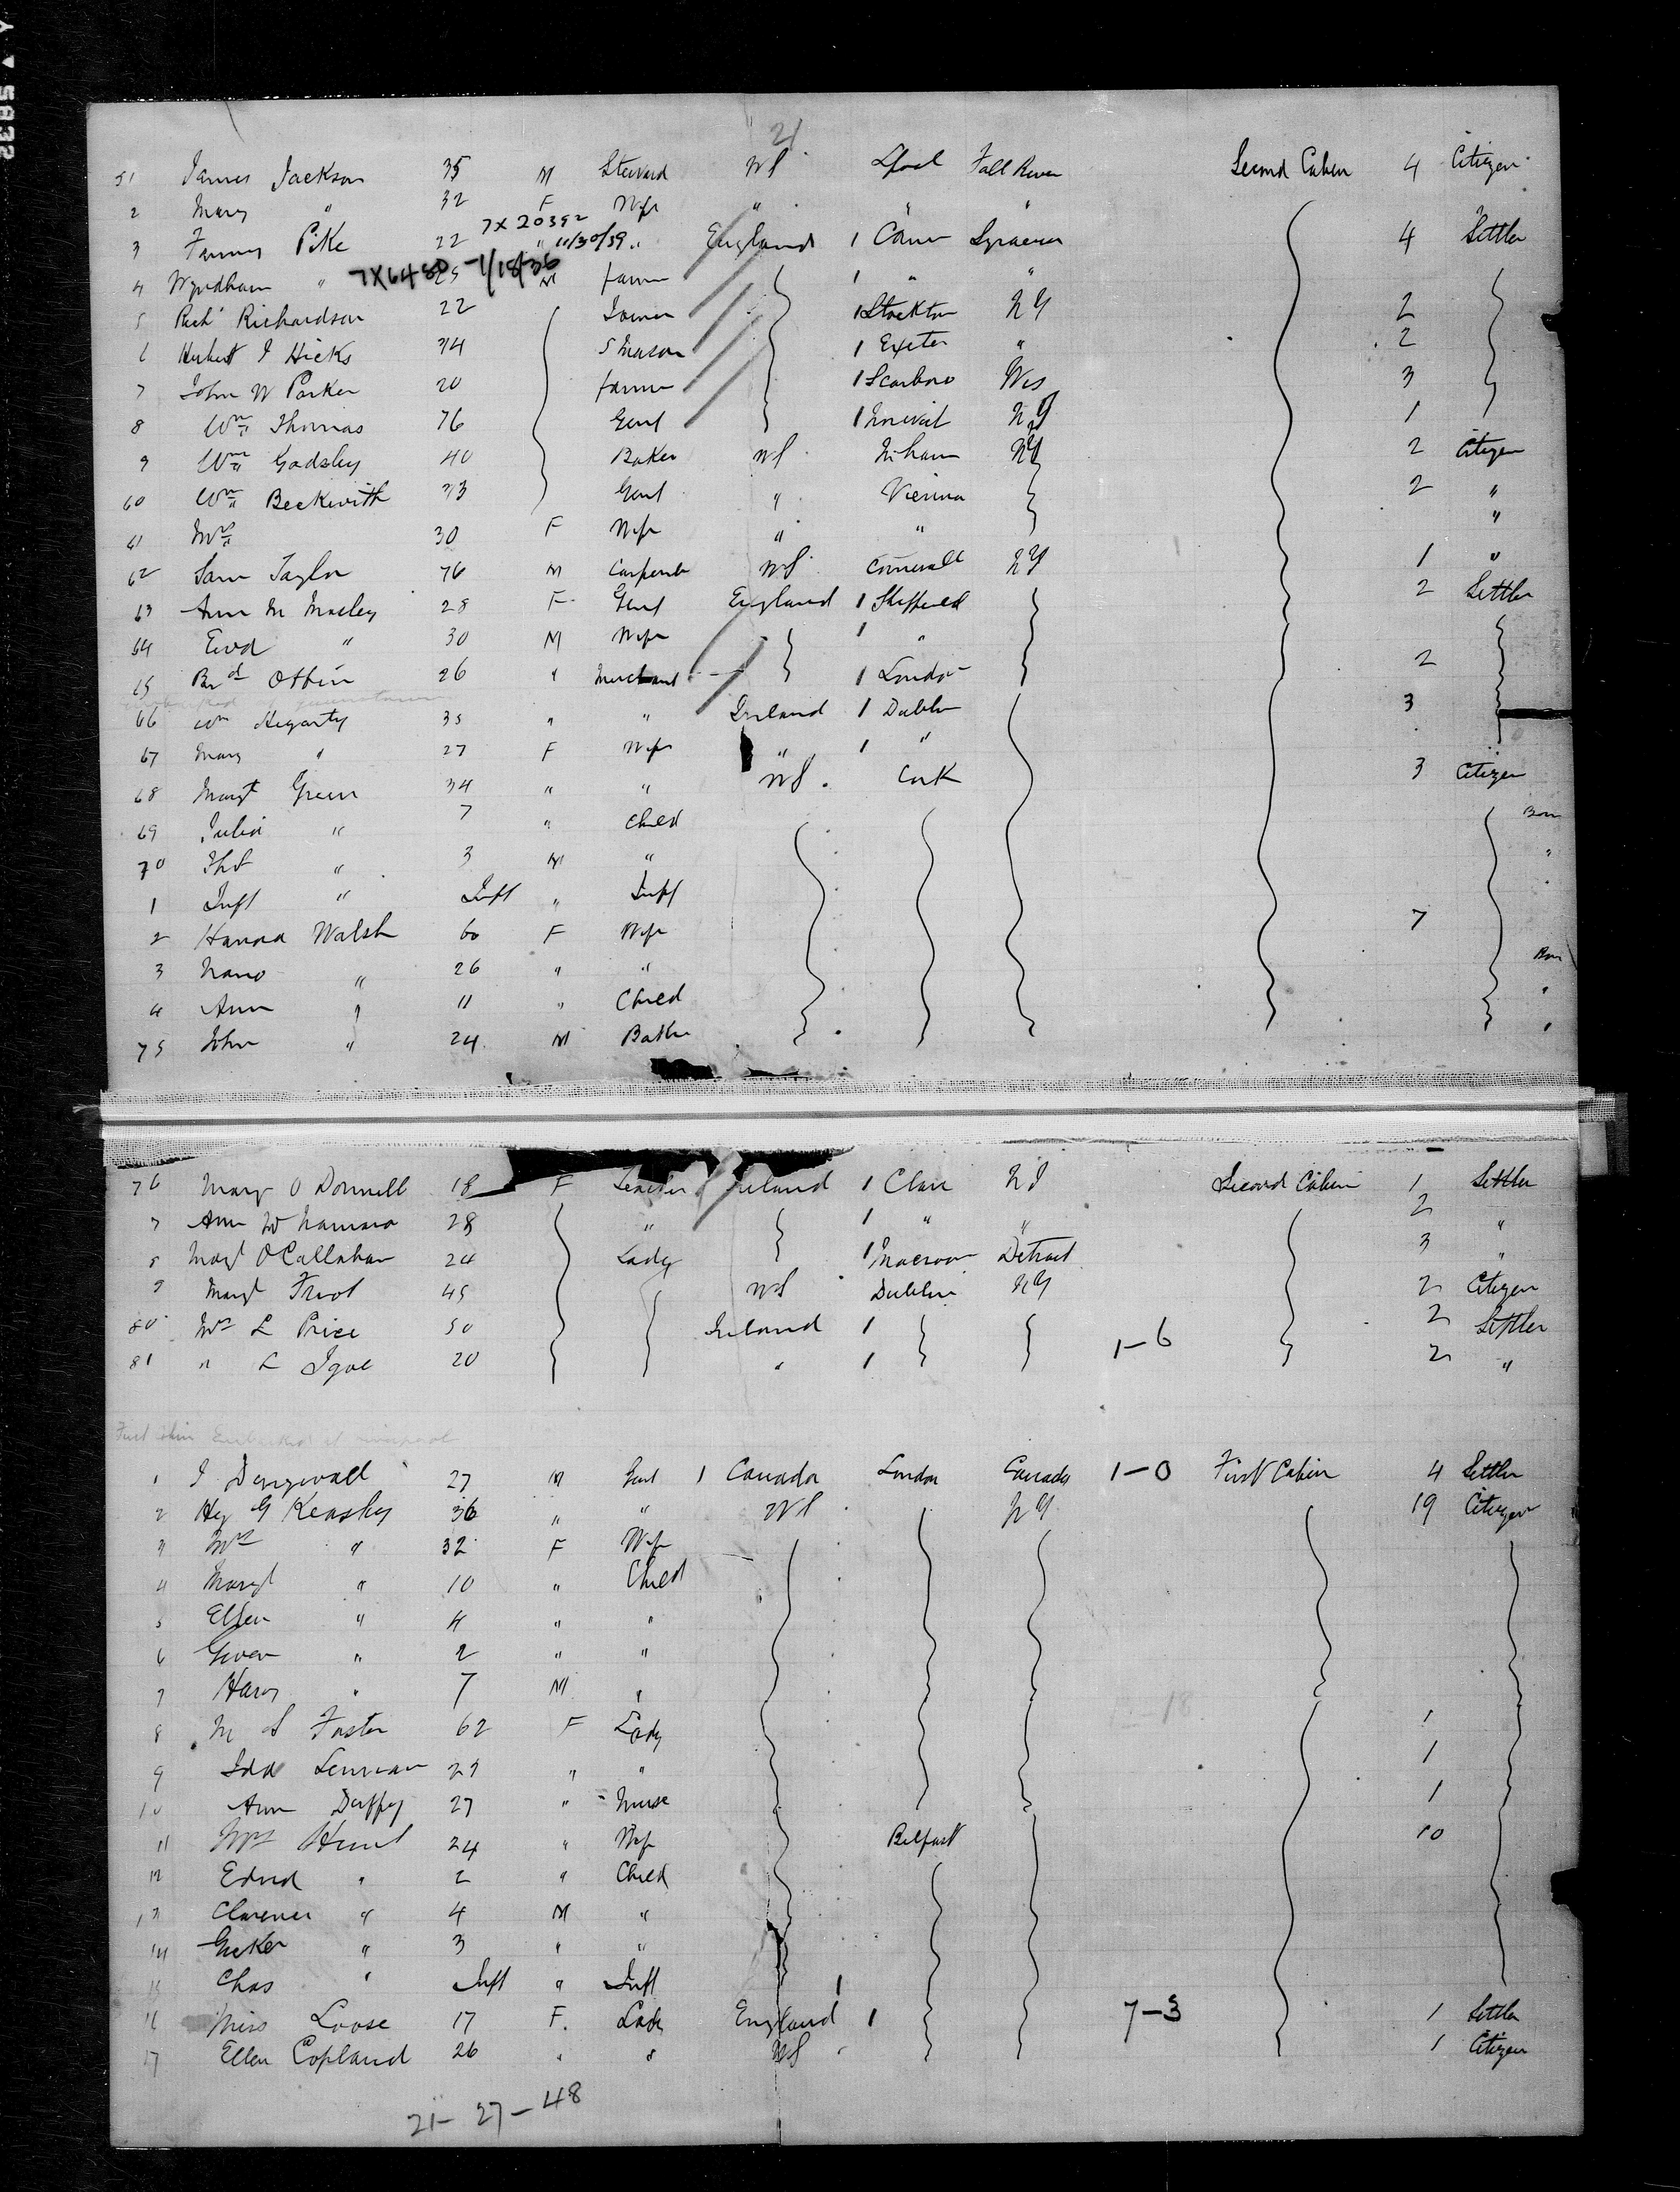 21
51 James Jackson 35 M Steward US L'pool Fall River Second Cabin 4 Citizen
2 Mary " 32 F Wife " " "
7X 20392
3 Fanny Pike 22 " 11/30/39 " England 1 Cann Syracuse 4 Settler
7X6480 -1/18/36
4 Wyndham " 25 M farmer 1 " "
5 Richd Richardson 22 Joiner 1 Stockton NY 2
6 Hubert J Hicks 34 S Mason 1 Exeter " 2
7 John W Parker 20 farmer 1 Scarboro Wis 3
8 Wm Thomas 76 Gent 1 NY 1
9 Wm Gadsley 40 Baker US NY 2 Citizen
60 Wm Beckwith 33 Gent " Vienna 2 "
61 Mrs " 30 F Wife " " "
62 Sam Taylor 76 M Carpenter US Cornwall NY 1 "
63 Ann M Mosley 28 F Gent England 1 Sheffield 2 Settler
64 Ewd " 30 M Wife 1 "
65 26 " Merchant 1 London 2
66 Wm Hegarty 35 " " Ireland 1 Dublin 3
67 Mary " 27 F Wife " 1 "
68 Margt Green 34 " " US Cork 3 Citizen
69 Julia " 7 " Child Born
70 Ths " 3 M " "
1 Inft " Inft " Inft
2 Hanna Walsh 60 F Wife 7
3 Nano " 26 " " Born
4 Ann " 11 " Child "
75 John " 24 M Baker "
76 Mary O Donnell 18 F Ireland 1 Clare NY Second Cabin 1 Settler
7 Ann McNamara 28 " 1 " " 2 "
8 Margt O'Callahan 24 Lady 1 Macroom Detroit 3 "
9 Margt Frost 45 US Dublin NY 2 Citizen
80 Mrs L Price 50 Ireland 1 2 Settler
81 " L Igoe 20 " 1 1-6 2 "
First Cabin Embarked at Liverpool
1 J Dingwall 27 M Gent 1 Canada London Canada 1-0 First Cabin 4 Settler
2 Hy G Keasley 36 " " US NY 19 Citizen
3 Mrs " 32 F Wife
4 Margt " 10 " Child
5 Ellen " 4 " "
6 Gwen " 2 " "
7 Harry " 7 M "
8 M S Foster 62 F Lady 1
9 Ida 29 " " 1
10 Ann Duffy 27 " Nurse 1
11 Mrs Hunt 24 " Wife Belfast 10
12 Edwd " 2 " Child
13 Clarence " 4 M "
14 " 3 " "
15 Chas " Inft " Inft 1
16 Miss Loose 17 F. Lady England 1 7-3 1 Settler
17 Ellen Copland 26 " " US 1 Citizen
21-27-48